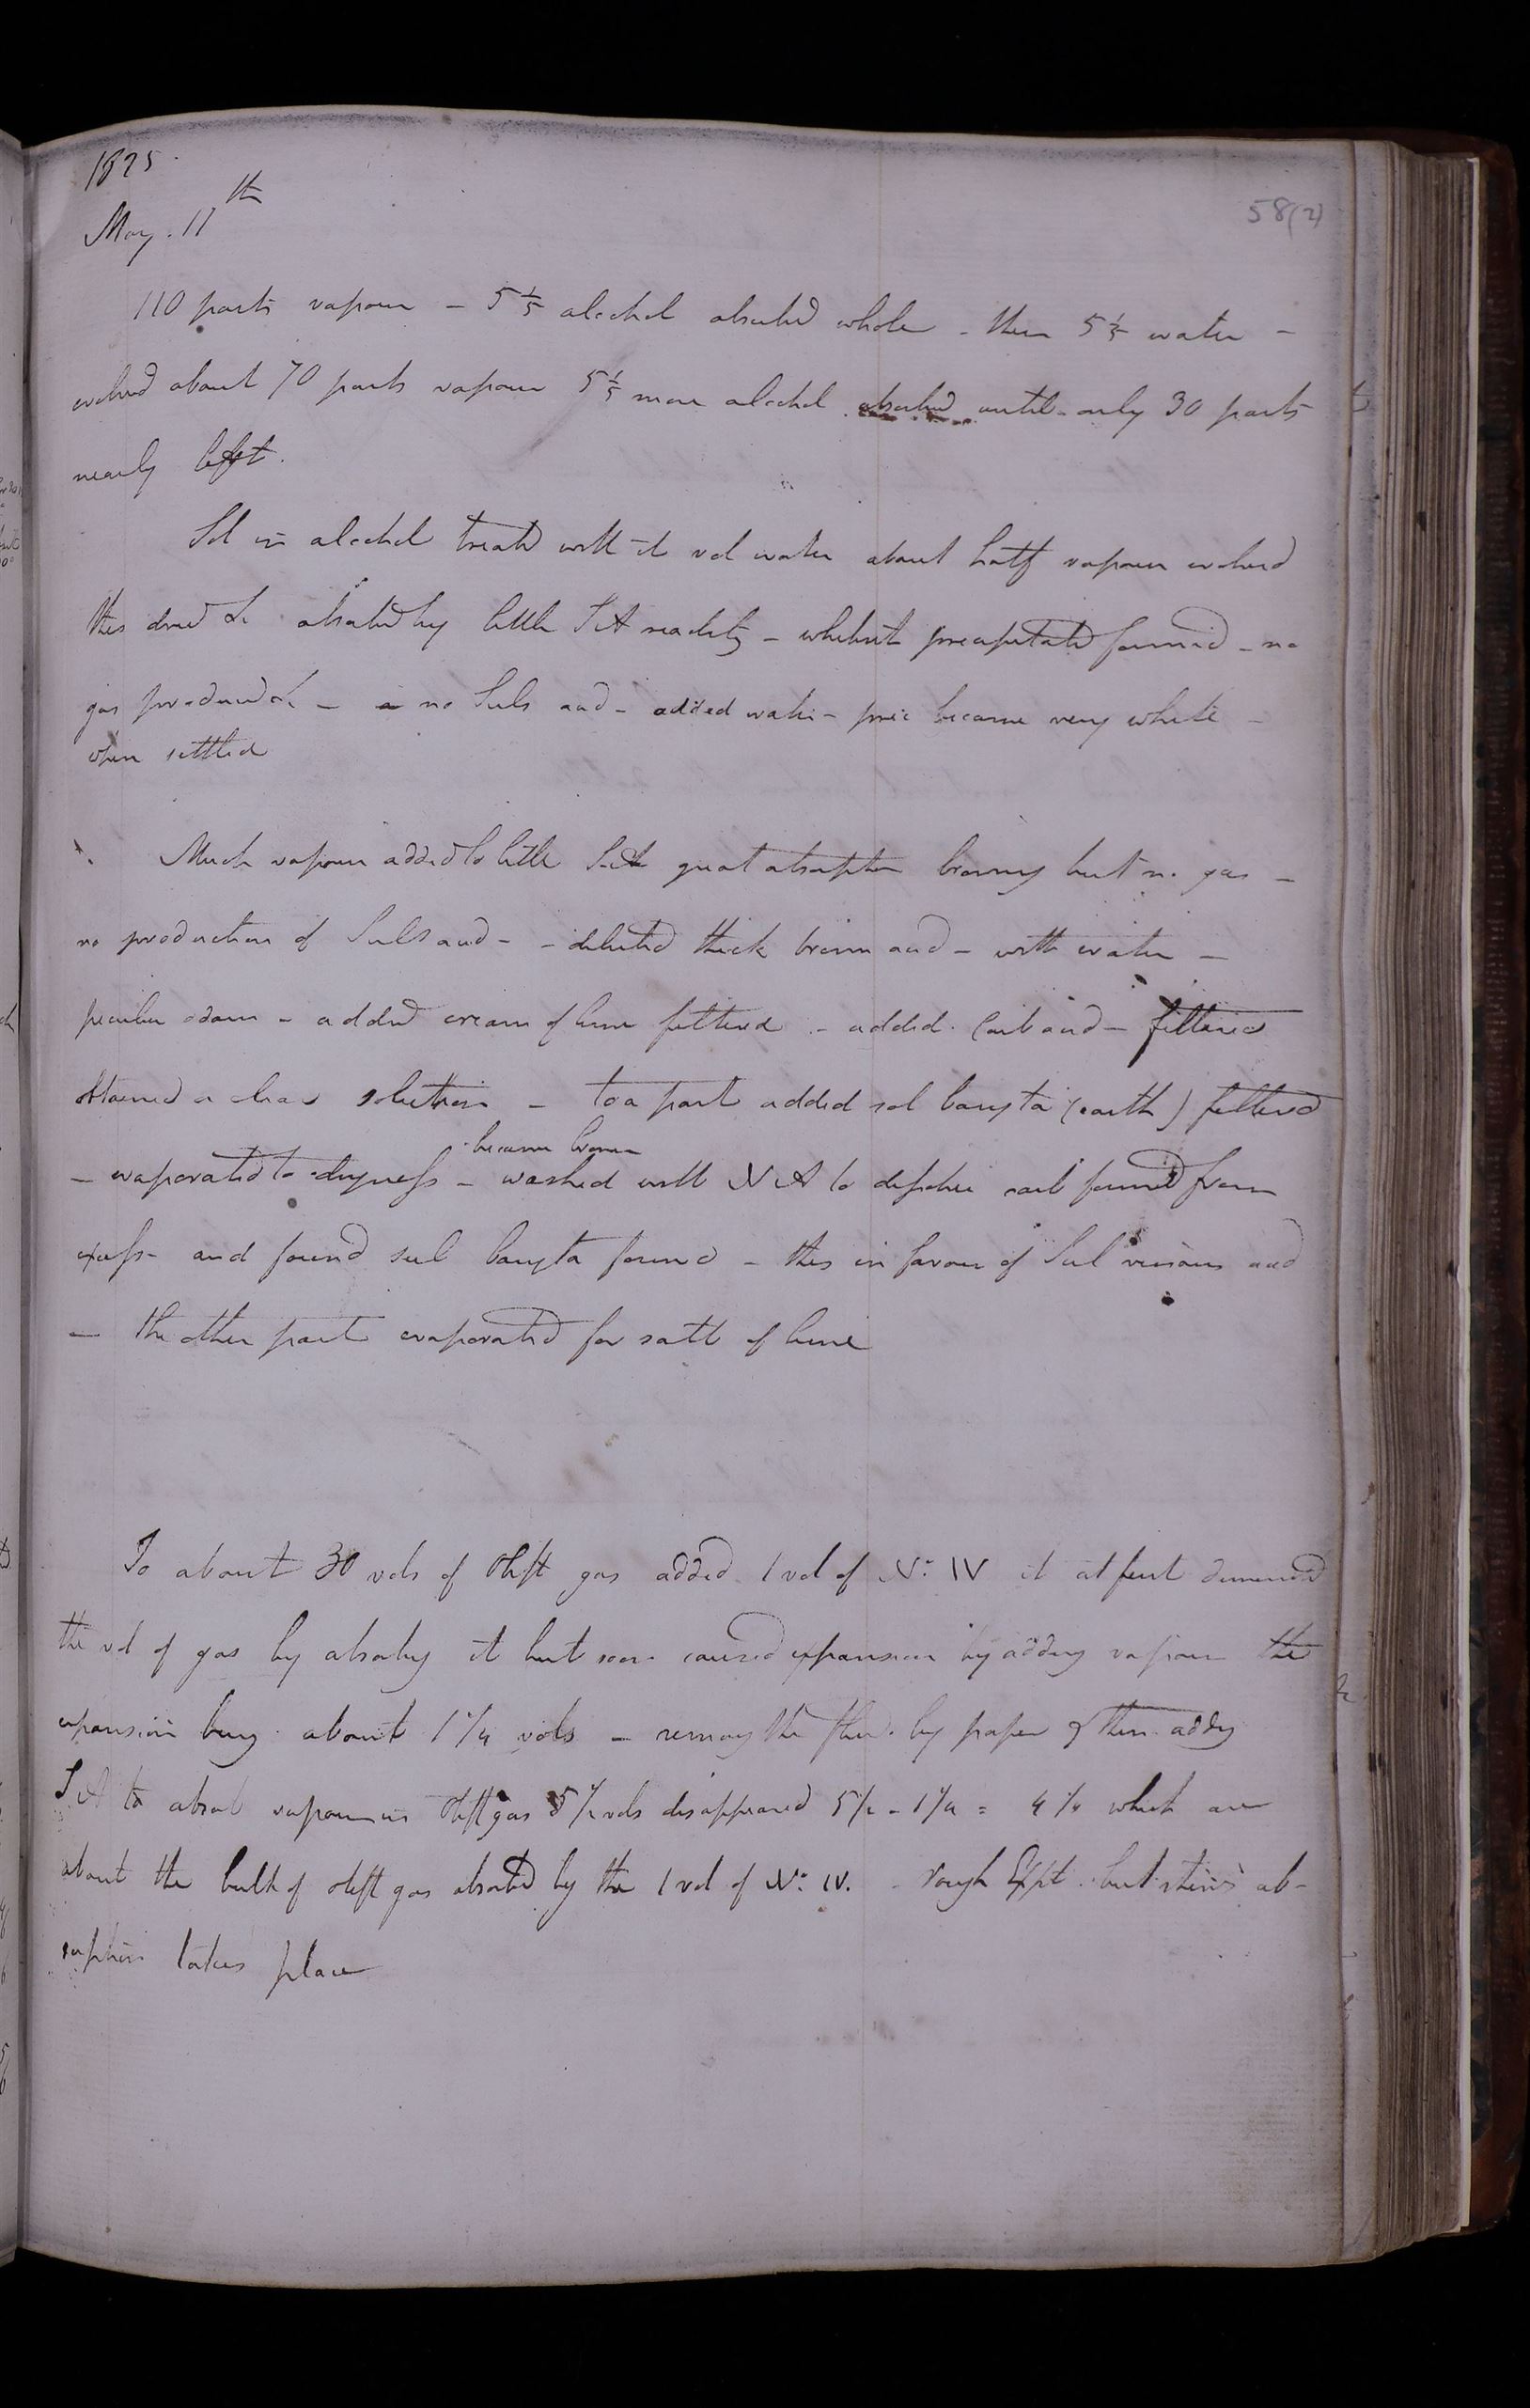 1825
May. 11th
58(2)
110 parts vapour - 5 1/5 alcohol absorbed whole - then 5 1/5 water -
evolved about 70 parts vapour 5 1/5 more alcohol absorbed until only 30 parts
nearly left.
Sol in alcohol treated with it vol water about half vapour evolved
this dried &c absorbed by little S A readily - whitish precipitate formed - no
gas produced &c - no Suls acid - added water - prec became very white -
when settled
Much vapour added to little S A great absorption browning but no gas -
no production of Suls acid - - diluted thick brown acid - with water -
peculiar odour - added cream of lime filtered - added Carb acid - filtered
obtained a clear solution - to a part added sol baryta (earth) filtered
became brown
- evaporated to dryness - washed with N A to dissolve carb formed from
excess - and found sul baryta formed - this in favour of Sul vinous acid
- the other part evaporated for salt of lime
To about 30 vols of Oleft gas added 1 vol of No. IV it at first diminished
the vol of gas by absorbing it but soon caused expansion by adding vapour the
expansion being about 1 1/4 vols - removing the fluid by paper & then adding
S A to absorb vapour in Oleft gas 5 1/2 vols disappeared 5 1/2 - 1 1/4 = 4 1/4 which are
about the bulk of oleft gas absorbed by the 1 vol of No. IV. - rough Expt but shews ab-
sorption takes place